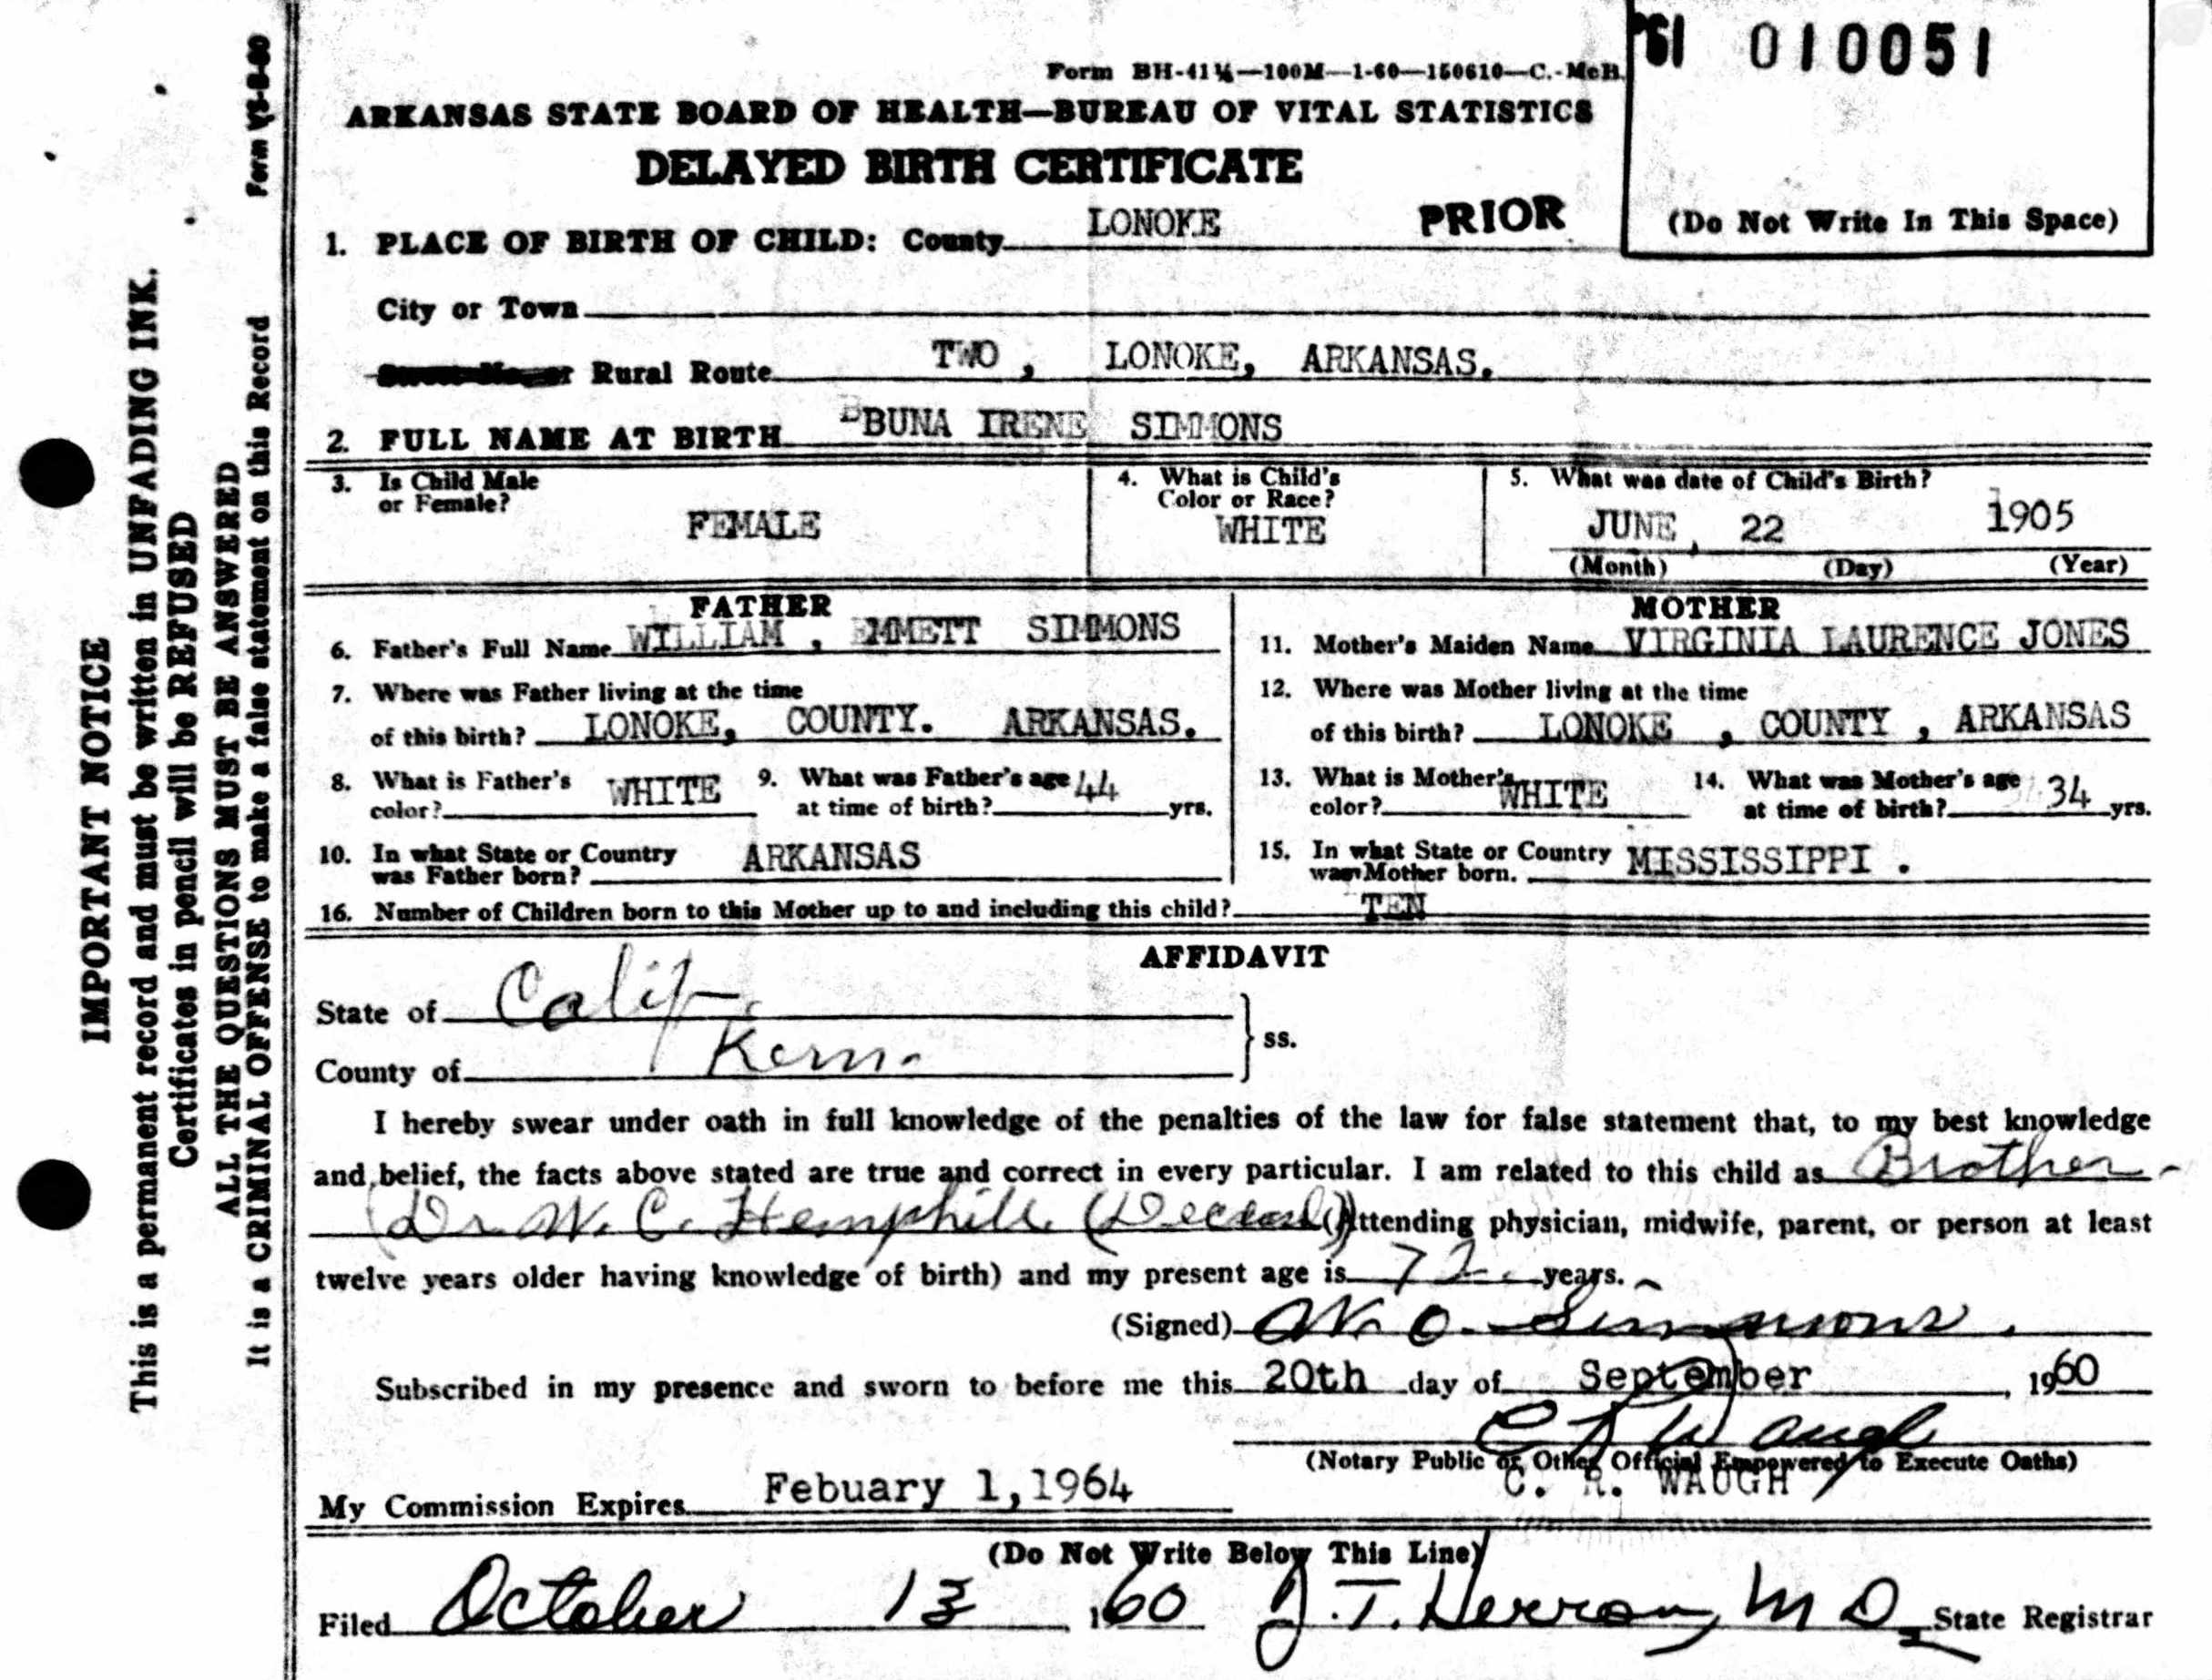 Form VS-8-60
IMPORTANT NOTICE
This is a permanent record and must be written in UNFADING INK.
Certificates in pencil will be REFUSED
ALL THE QUESTIONS MUST BE ANSWERED
It is a CRIMINAL OFFENSE to make a false statement on this Record
010051
(Do Not Write In This Space)
Form BH-41½—100M—1-60—150610—C.-McB.
ARKANSAS STATE BOARD OF HEALTH—BUREAU OF VITAL STATISTICS
DELAYED BIRTH CERTIFICATE
PRIOR
1. PLACE OF BIRTH OF CHILD: County LONOKE
City or Town
Rural Route TWO , LONOKE, ARKANSAS.
2. FULL NAME AT BIRTH BBUNA IRENE SIMMONS
3. Is Child Male
or Female?
FEMALE
4. What is Child's
Color or Race?
WHITE
5. What was date of Child's Birth?
JUNE, 22 1905
(Month) (Day) (Year)
FATHER
6. Father's Full Name WILLIAM , EMMETT SIMMONS
7. Where was Father living at the time
of this birth? LONOKE, COUNTY. ARKANSAS.
8. What is Father's
color? WHITE
9. What was Father's age
at time of birth? 44 yrs.
10. In what State or Country
was Father born? ARKANSAS
MOTHER
11. Mother's Maiden Name VIRGINIA LAURENCE JONES
12. Where was Mother living at the time
of this birth? LONOKE , COUNTY , ARKANSAS
13. What is Mother's
color? WHITE
14. What was Mother's age
at time of birth? 34 yrs.
15. In what State or Country
was Mother born. MISSISSIPPI .
16. Number of Children born to this Mother up to and including this child? TEN
AFFIDAVIT
State of Calif.
County of Kern.
ss.
I hereby swear under oath in full knowledge of the penalties of the law for false statement that, to my best knowledge
and belief, the facts above stated are true and correct in every particular. I am related to this child as Brother-
(Dr. W. C. Hemphill. (Attending physician, midwife, parent, or person at least
twelve years older having knowledge of birth) and my present age is 72 years.
(Signed) W. O. Simmons.
Subscribed in my presence and sworn to before me this 20th day of September, 1960
C R Waugh
(Notary Public or Other Official Empowered to Execute Oaths)
C. R. WAUGH
My Commission Expires Febuary 1,1964
(Do Not Write Below This Line)
Filed October 13 , 1960 J. T. Herron, M D State Registrar